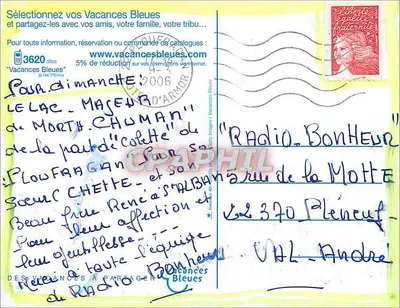 Sélectionnez vos Vacances Bleues
et partagez-les avec vos amis, votre famille, votre tribu...
Pour toute information, réservation ou commande de catalogues :
3620 dites
"Vacances Bleues"
www.vacancesbleues.com
5% de réduction
2006
CÔTES D'ARMOR
LIBERTÉ
ÉGALITÉ
FRATERNITÉ
Pour dimanche:
LE LAC. MAJEUR
de MORTH. CHUMAN"
de la part de "Colette" de
PLOUFRAGAN Pour sa
Soeur CHETTE - et son
Beau frère René à St ALBAN
Pour leur affection et
leur gentillesse. ---
Merci à toute l'équipe
de RADIO Bonheur
"RADIO-BONHEUR"
rue de la MOTTE
22370 Pléneuf-
VAL-André
DES VACANCES À PARTAGER
Vacances
Bleues
CPAPHIL